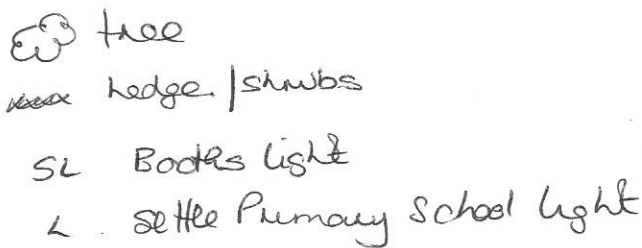 tree
xxxxx hedge / shrubs
SL Booths light
L. Settle Primary School light